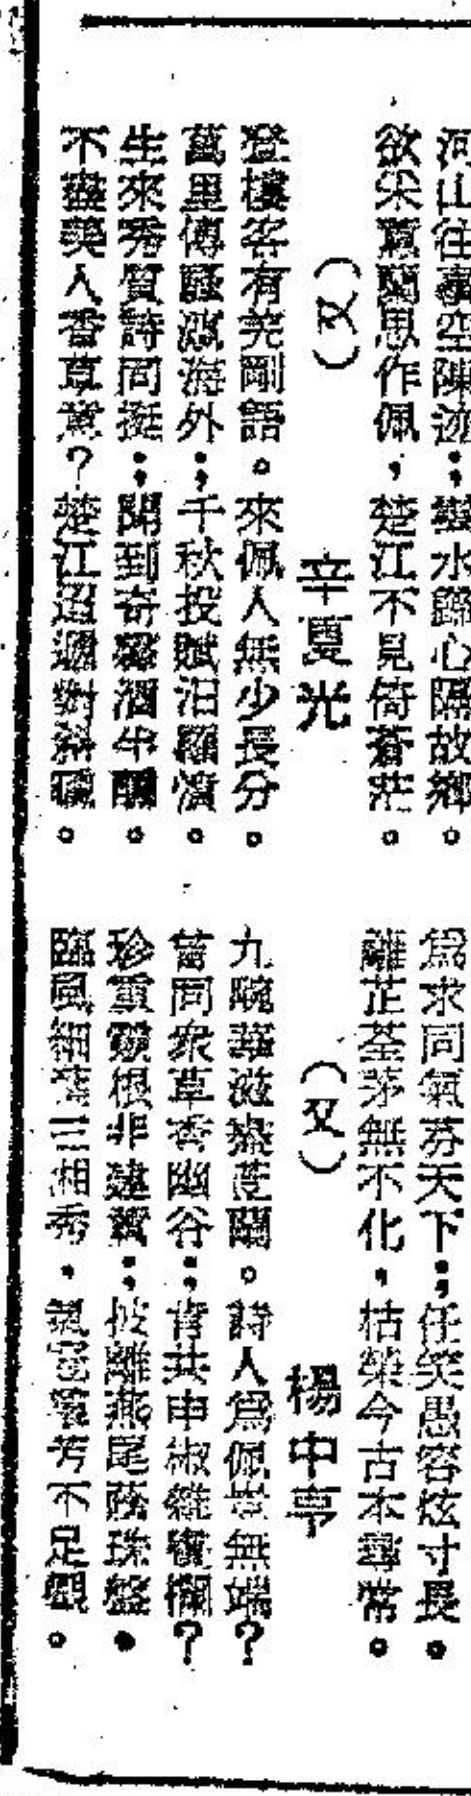 河山往事空陳迹；水歸心隔故鄉。
欲采蕙蘭思作佩，楚江不見倚蒼茫。
（又）　辛夏光
登樓客有羌剛語。來佩人無少長分。
萬里傳騷瀛海外；千秋投賦汨羅濆。
生來秀質詩同挺；開到奇馨酒半醺。
不盡美人香草意？楚江迢遞對斜曛。
爲求同氣芬天下；任笑愚容炫寸長。
蘺芷荃茅無不化，枯榮今古本尋常。
（又）　楊中亭
九畹華滋蘭。詩人爲佩豈無端？
昔同衆草香幽谷；肯共申椒雜穢欄？
珍重靈根非建；披離燕尾蔭珠盤。
臨風細三湘秀．氣羣芳不足觀。